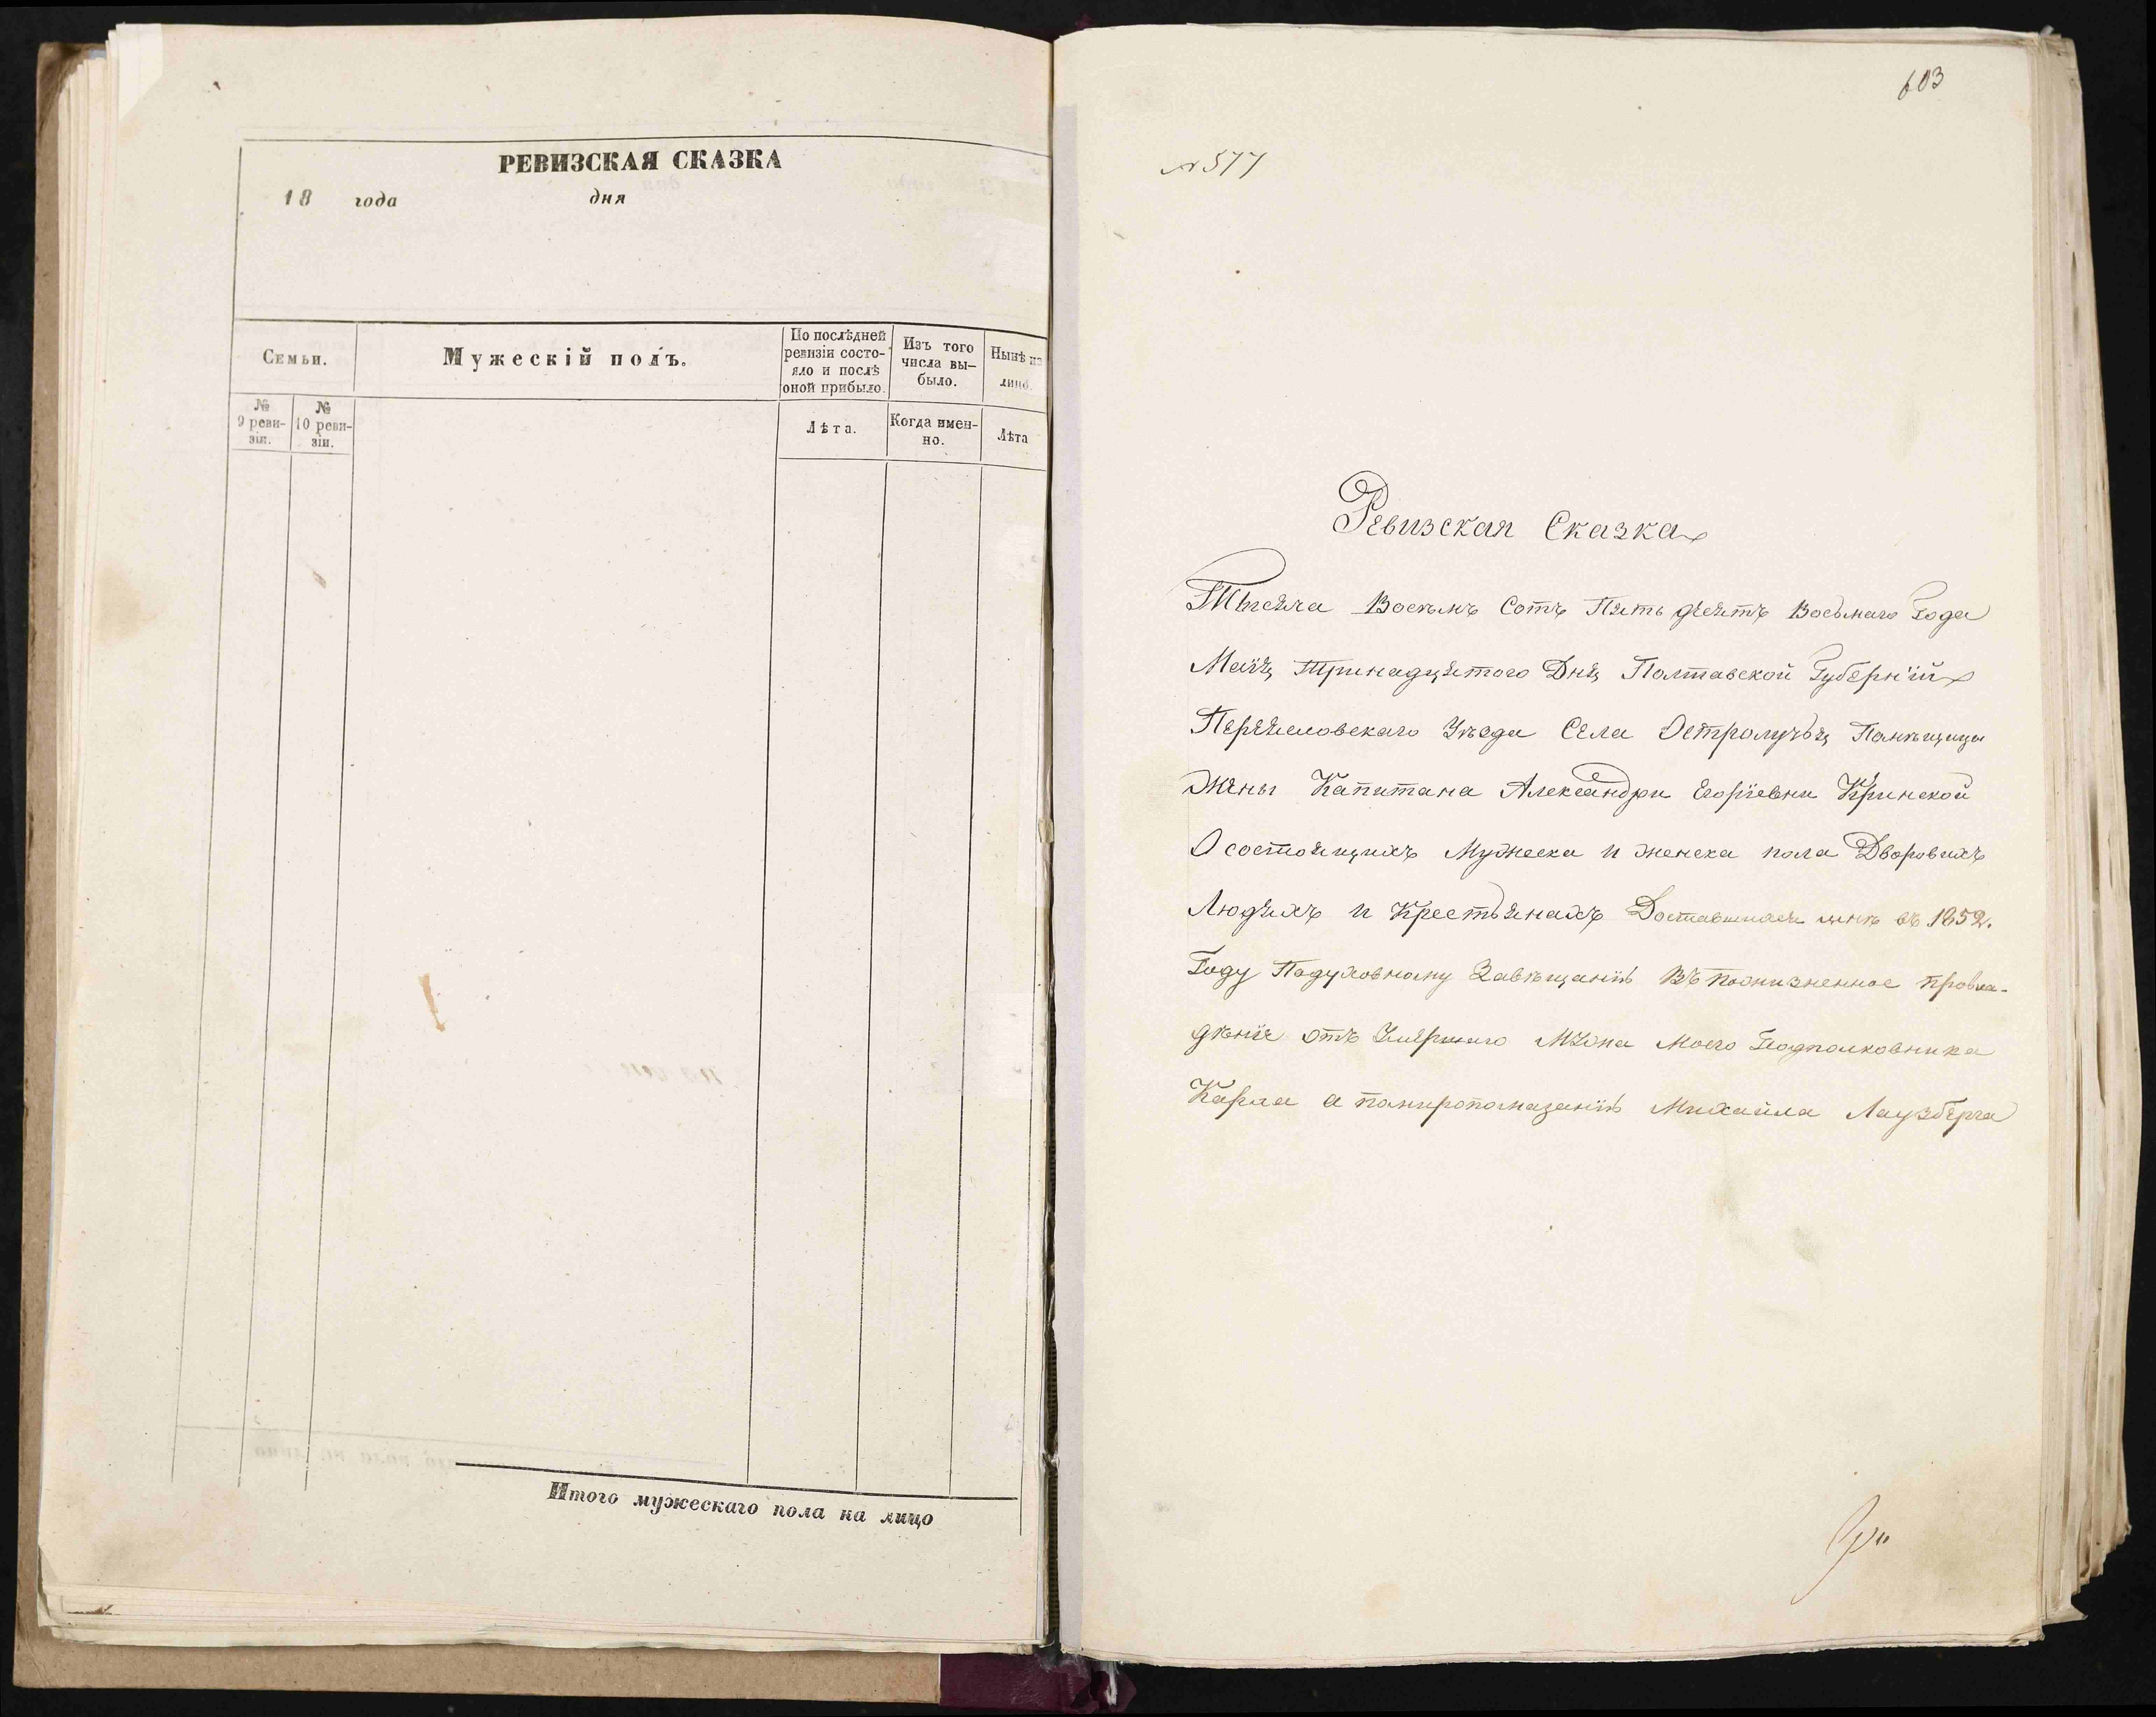 РЕВИЗСКАЯ СКАЗКА
18 года дня
Семьи.
Мужескій полъ.
По послѣдней
ревизіи состо-
яло и послѣ
оной прибыло.
Изъ того
числа вы-
было.
Нынѣ на
лицо.
№
9 реви-
зіи.
№
10 реви-
зіи.
Лѣта.
Когда имен-
но.
Лѣта
Итого мужескаго пола на лицо
603
№577
Ревизская Сказка
Тысяча Восемъ Сотъ Пять десятъ Восьмаго Года
Маія Тринадцятого Дня Полтавской Губерніи
Переяславскаго Уѣзда Села Остролучья Помѣщицы
Жены Капитана Александри Егоріевни Кринской
О состоящихъ Мужеска и женска пола Дворовихъ
Людяхъ и Крестьянахъ Доставшихся мнѣ въ 1852.
Году Подуховному Завѣщанію Въ пожизненное провла-
дѣніе отъ Умершаго Мужа Моего Подполковника
Карла а помиропомазанію Михаила Лаузберга